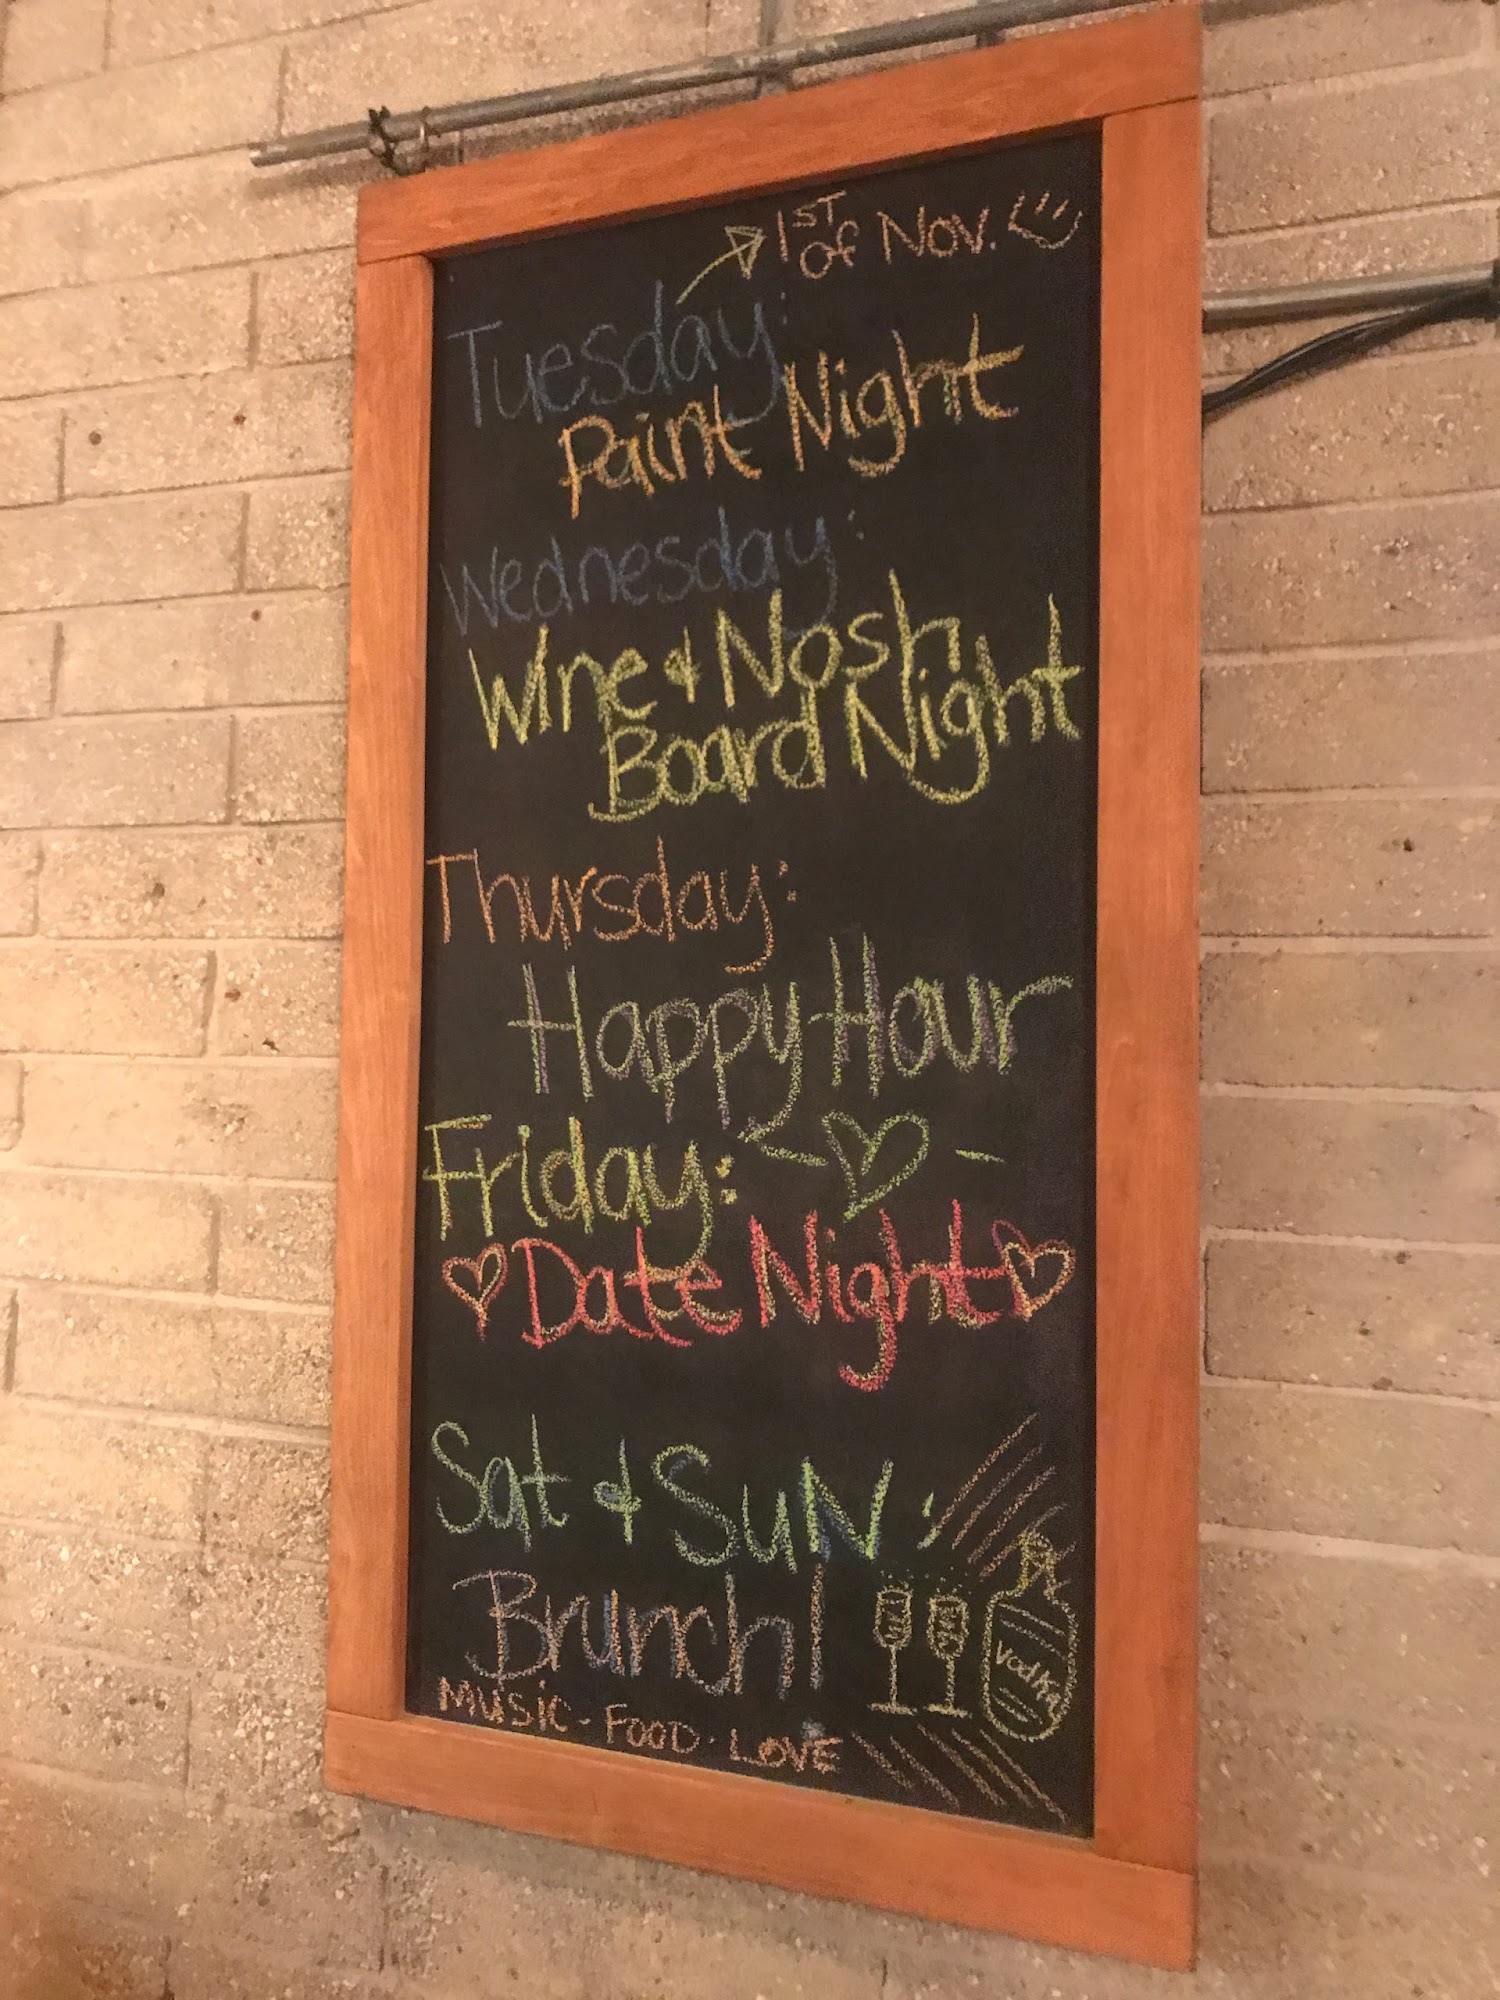 1ST of Nov.
Tuesday:
Paint Night
Wednesday:
Wine & Nosh
Board Night
Thursday:
Happy Hour
Friday:
Date Night
Sat & Sun:
Brunch!
Vodka
MUSIC - FOOD - LOVE